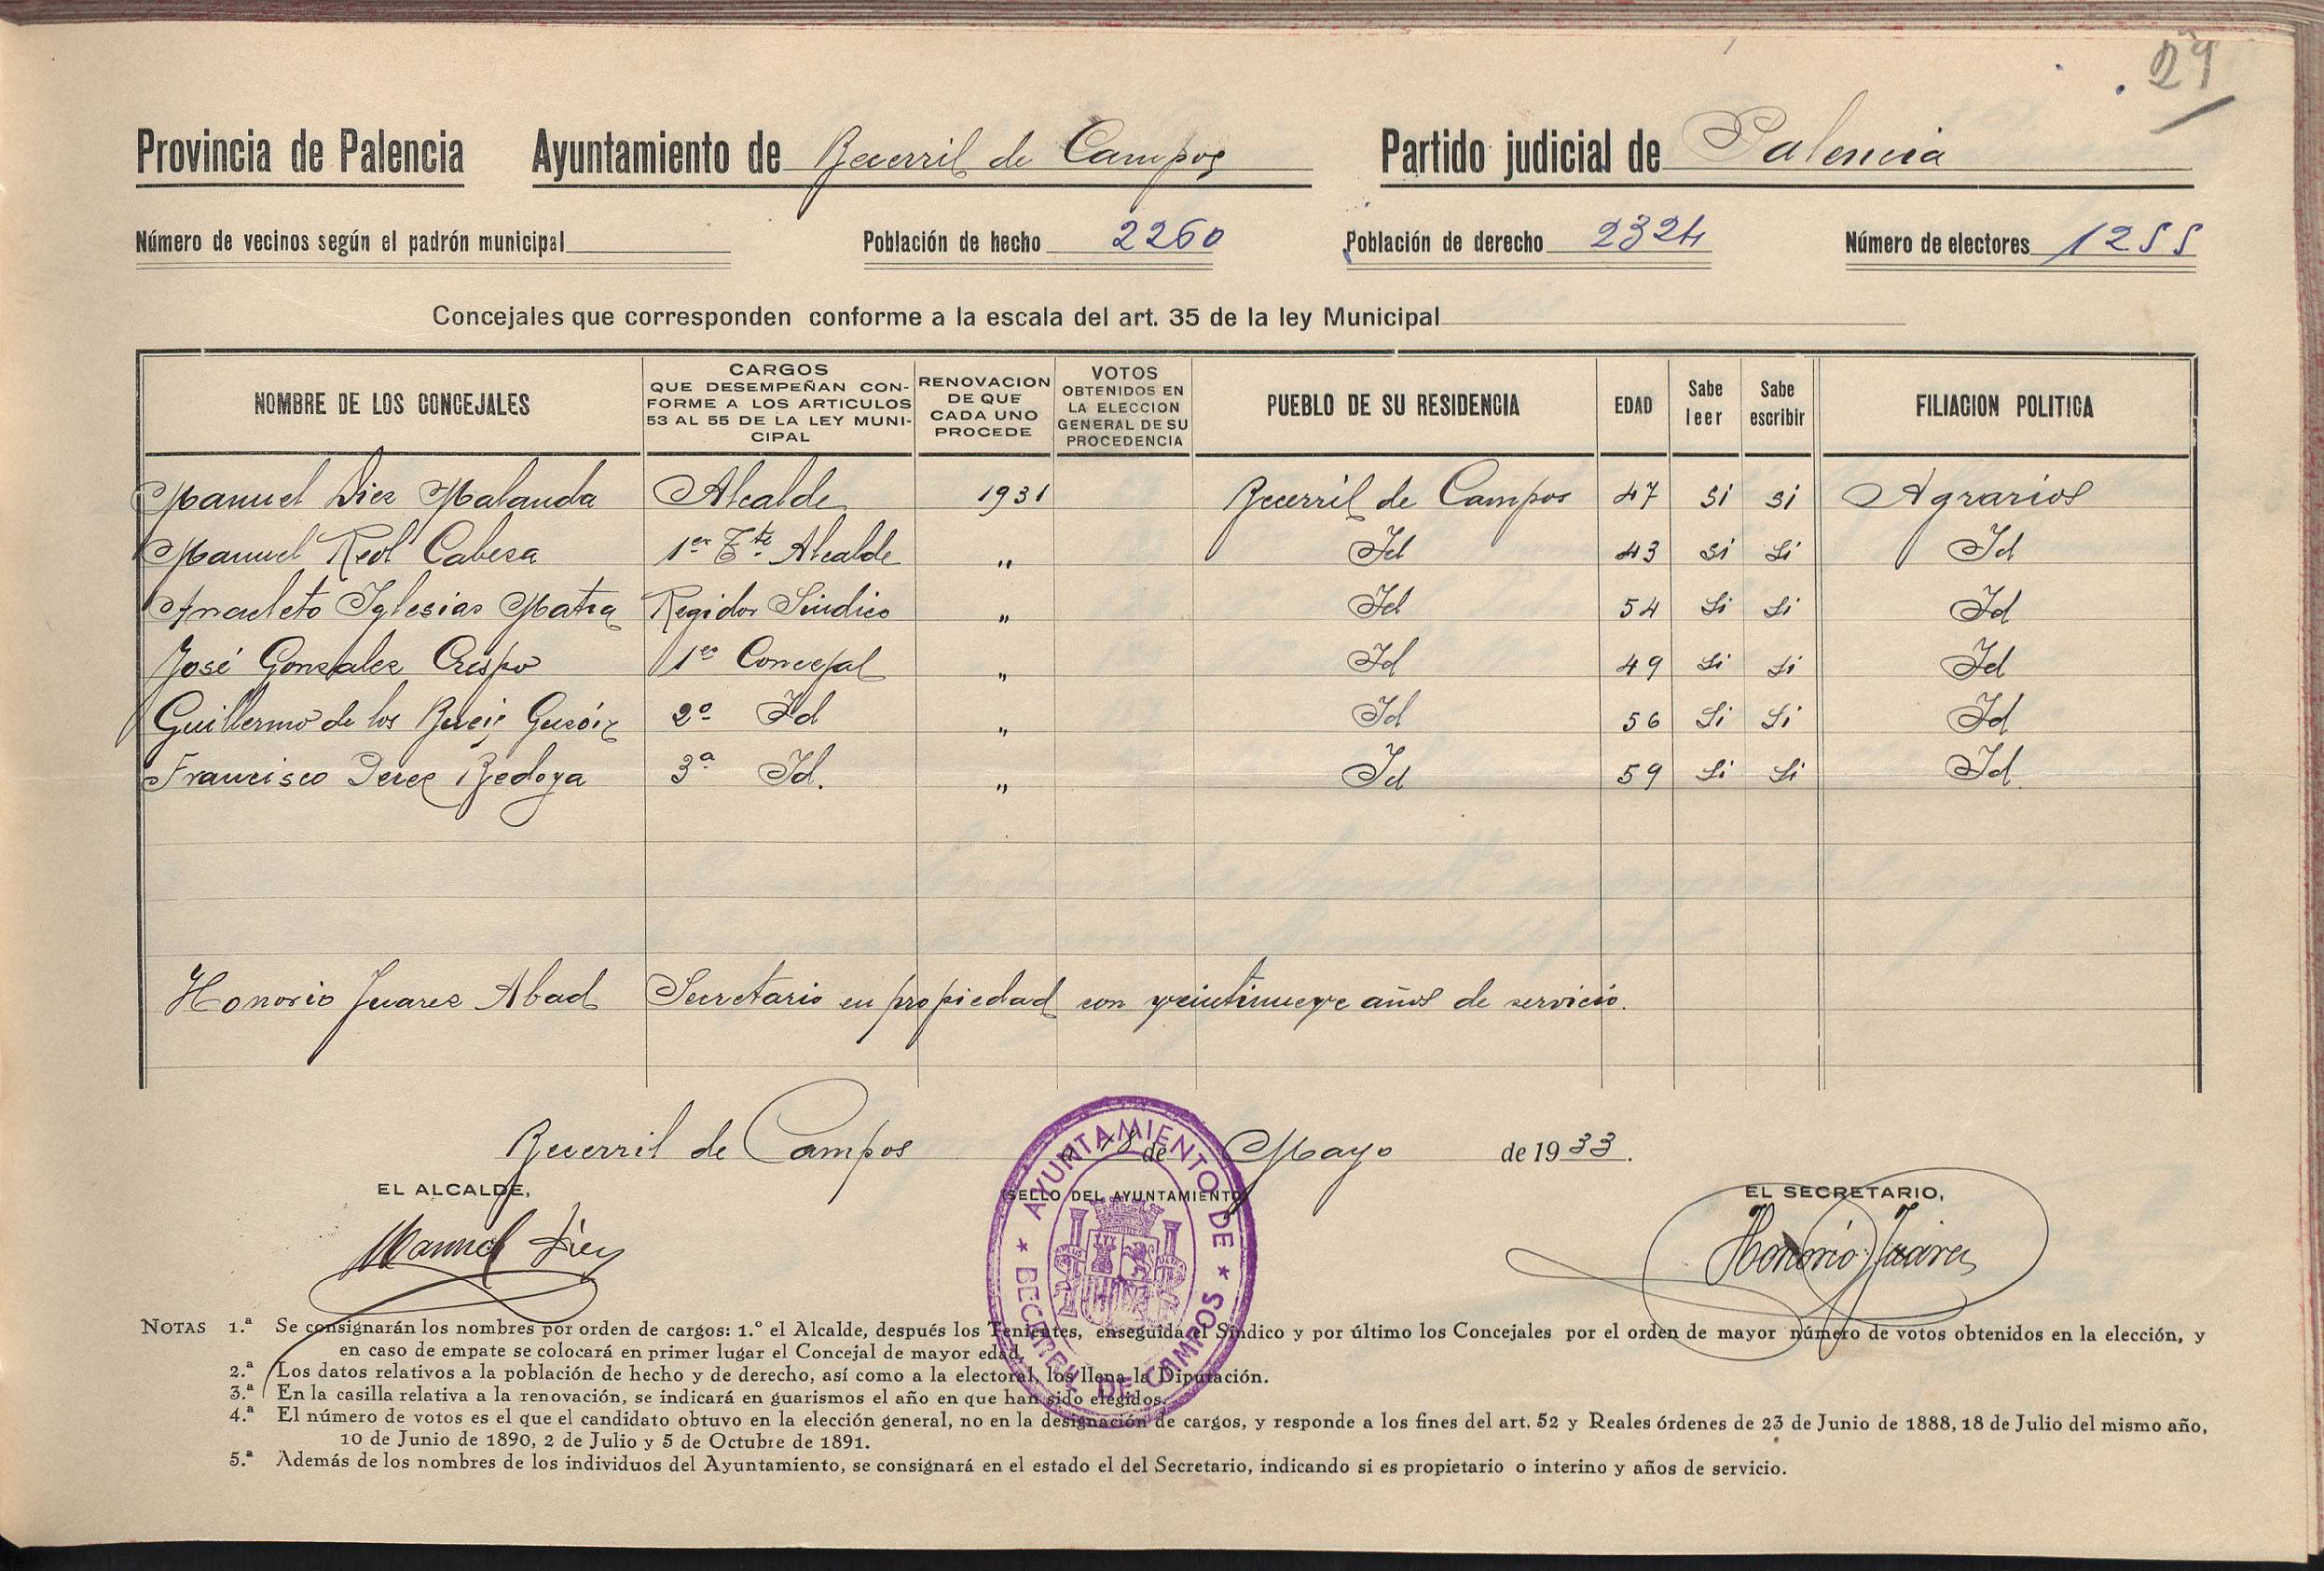 29
Provincia de Palencia Ayuntamiento de Becerril de Campos Partido judicial de Palencia
Número de vecinos según el padrón municipal Población de hecho 2260 Población de derecho 2324 Número de electores 1255
Concejales que corresponden conforme a la escala del art. 35 de la ley Municipal
NOMBRE DE LOS CONCEJALES
CARGOS
QUE DESEMPEÑAN CON-
FORME A LOS ARTICULOS
53 AL 55 DE LA LEY MUNI-
CIPAL
RENOVACION
DE QUE
CADA UNO
PROCEDE
VOTOS
OBTENIDOS EN
LA ELECCION
GENERAL DE SU
PROCEDENCIA
PUEBLO DE SU RESIDENCIA
EDAD
Sabe
leer
Sabe
escribir
FILIACION POLITICA
Manuel Diez Malanda Alcalde 1931 Becerril de Campos 47 si si Agrarios
Manuel Reol Cabeza 1er Tte. Alcalde " Id 43 si si Id
Anacleto Iglesias Regidor Sindico " Id 54 Si Si Id
José Gonzalez Crespo 1er Concejal " Id 49 Si Si Id
Guillermo de los 2º Id " Id 56 Si Si Id
Francisco Perez Bedoya 3ª Id. " Id 59 Si Si Id.
Honorio Juarez Abad Secretario en propiedad con veintinueve años de servicio.
Becerril de Campos a 18 de Mayo de 1933.
EL ALCALDE,
(SELLO DEL AYUNTAMIENTO)
EL SECRETARIO,
Manuel Diez
AYUNTAMIENTO DE
* BECERRIL DE CAMPOS *
PLUS
Honorio Juarez
NOTAS 1.ª Se consignarán los nombres por orden de cargos: 1.º el Alcalde, después los Tenientes, enseguida el Síndico y por último los Concejales por el orden de mayor número de votos obtenidos en la elección, y
en caso de empate se colocará en primer lugar el Concejal de mayor edad.
2.ª Los datos relativos a la población de hecho y de derecho, así como a la electoral, los llena la Diputación.
3.ª En la casilla relativa a la renovación, se indicará en guarismos el año en que han sido elegidos.
4.ª El número de votos es el que el candidato obtuvo en la elección general, no en la designación de cargos, y responde a los fines del art. 52 y Reales órdenes de 23 de Junio de 1888, 18 de Julio del mismo año,
10 de Junio de 1890, 2 de Julio y 5 de Octubre de 1891.
5.ª Además de los nombres de los individuos del Ayuntamiento, se consignará en el estado el del Secretario, indicando si es propietario o interino y años de servicio.